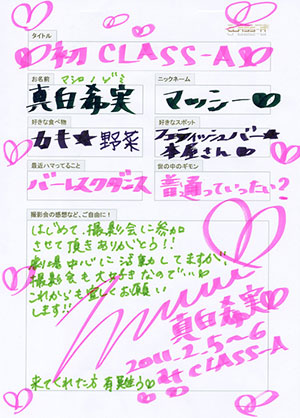 タイトル
初 CLASS-A
お名前
マシロ ノゾミ
ニックネーム
真白希実
マッシー
好きな食べ物
好きなスポット
カキ★野菜
フェティッシュバー★
本屋さん
最近ハマってること
世の中のギモン
バーレスクダンス
普通っていったい?
撮影会の感想など、ご自由に!
はじめて、撮影会に参加
させて頂きありがとう!!
劇場中心に活動してますが!!
撮影会も大好きなので
これからも宜しくお願い
します!!
真白希実
2011.2.5〜6
at CLASS-A
来てくれた方